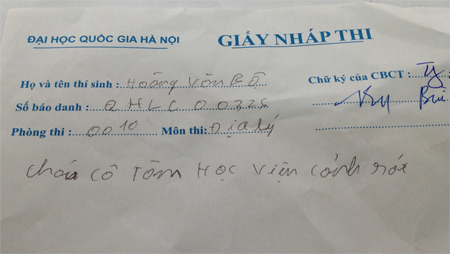 ĐẠI HỌC QUỐC GIA HÀ NỘI
GIẤY NHÁP THI
Họ và tên thí sinh : Hoàng Văn
Chữ ký của CBCT :
Số báo danh : QHLC00
Phòng thi : 0010 Môn thi: Địa lý
Cháu cô Tâm Học Viện Cảnh sát